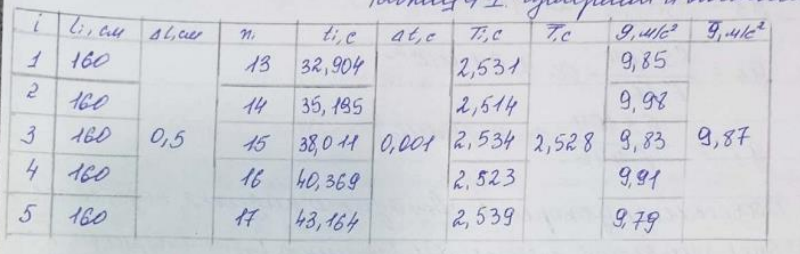 Таблица 1. Измерения и
i li, см Δl, см ni ti, c Δt, c Ti, c T̄, c g, м/с² ḡ, м/с²
1 160 13 32,904 2,531 9,85
2 160 14 35,195 2,514 9,98
3 160 0,5 15 38,011 0,001 2,534 2,528 9,83 9,87
4 160 16 40,369 2,523 9,91
5 160 17 43,164 2,539 9,79